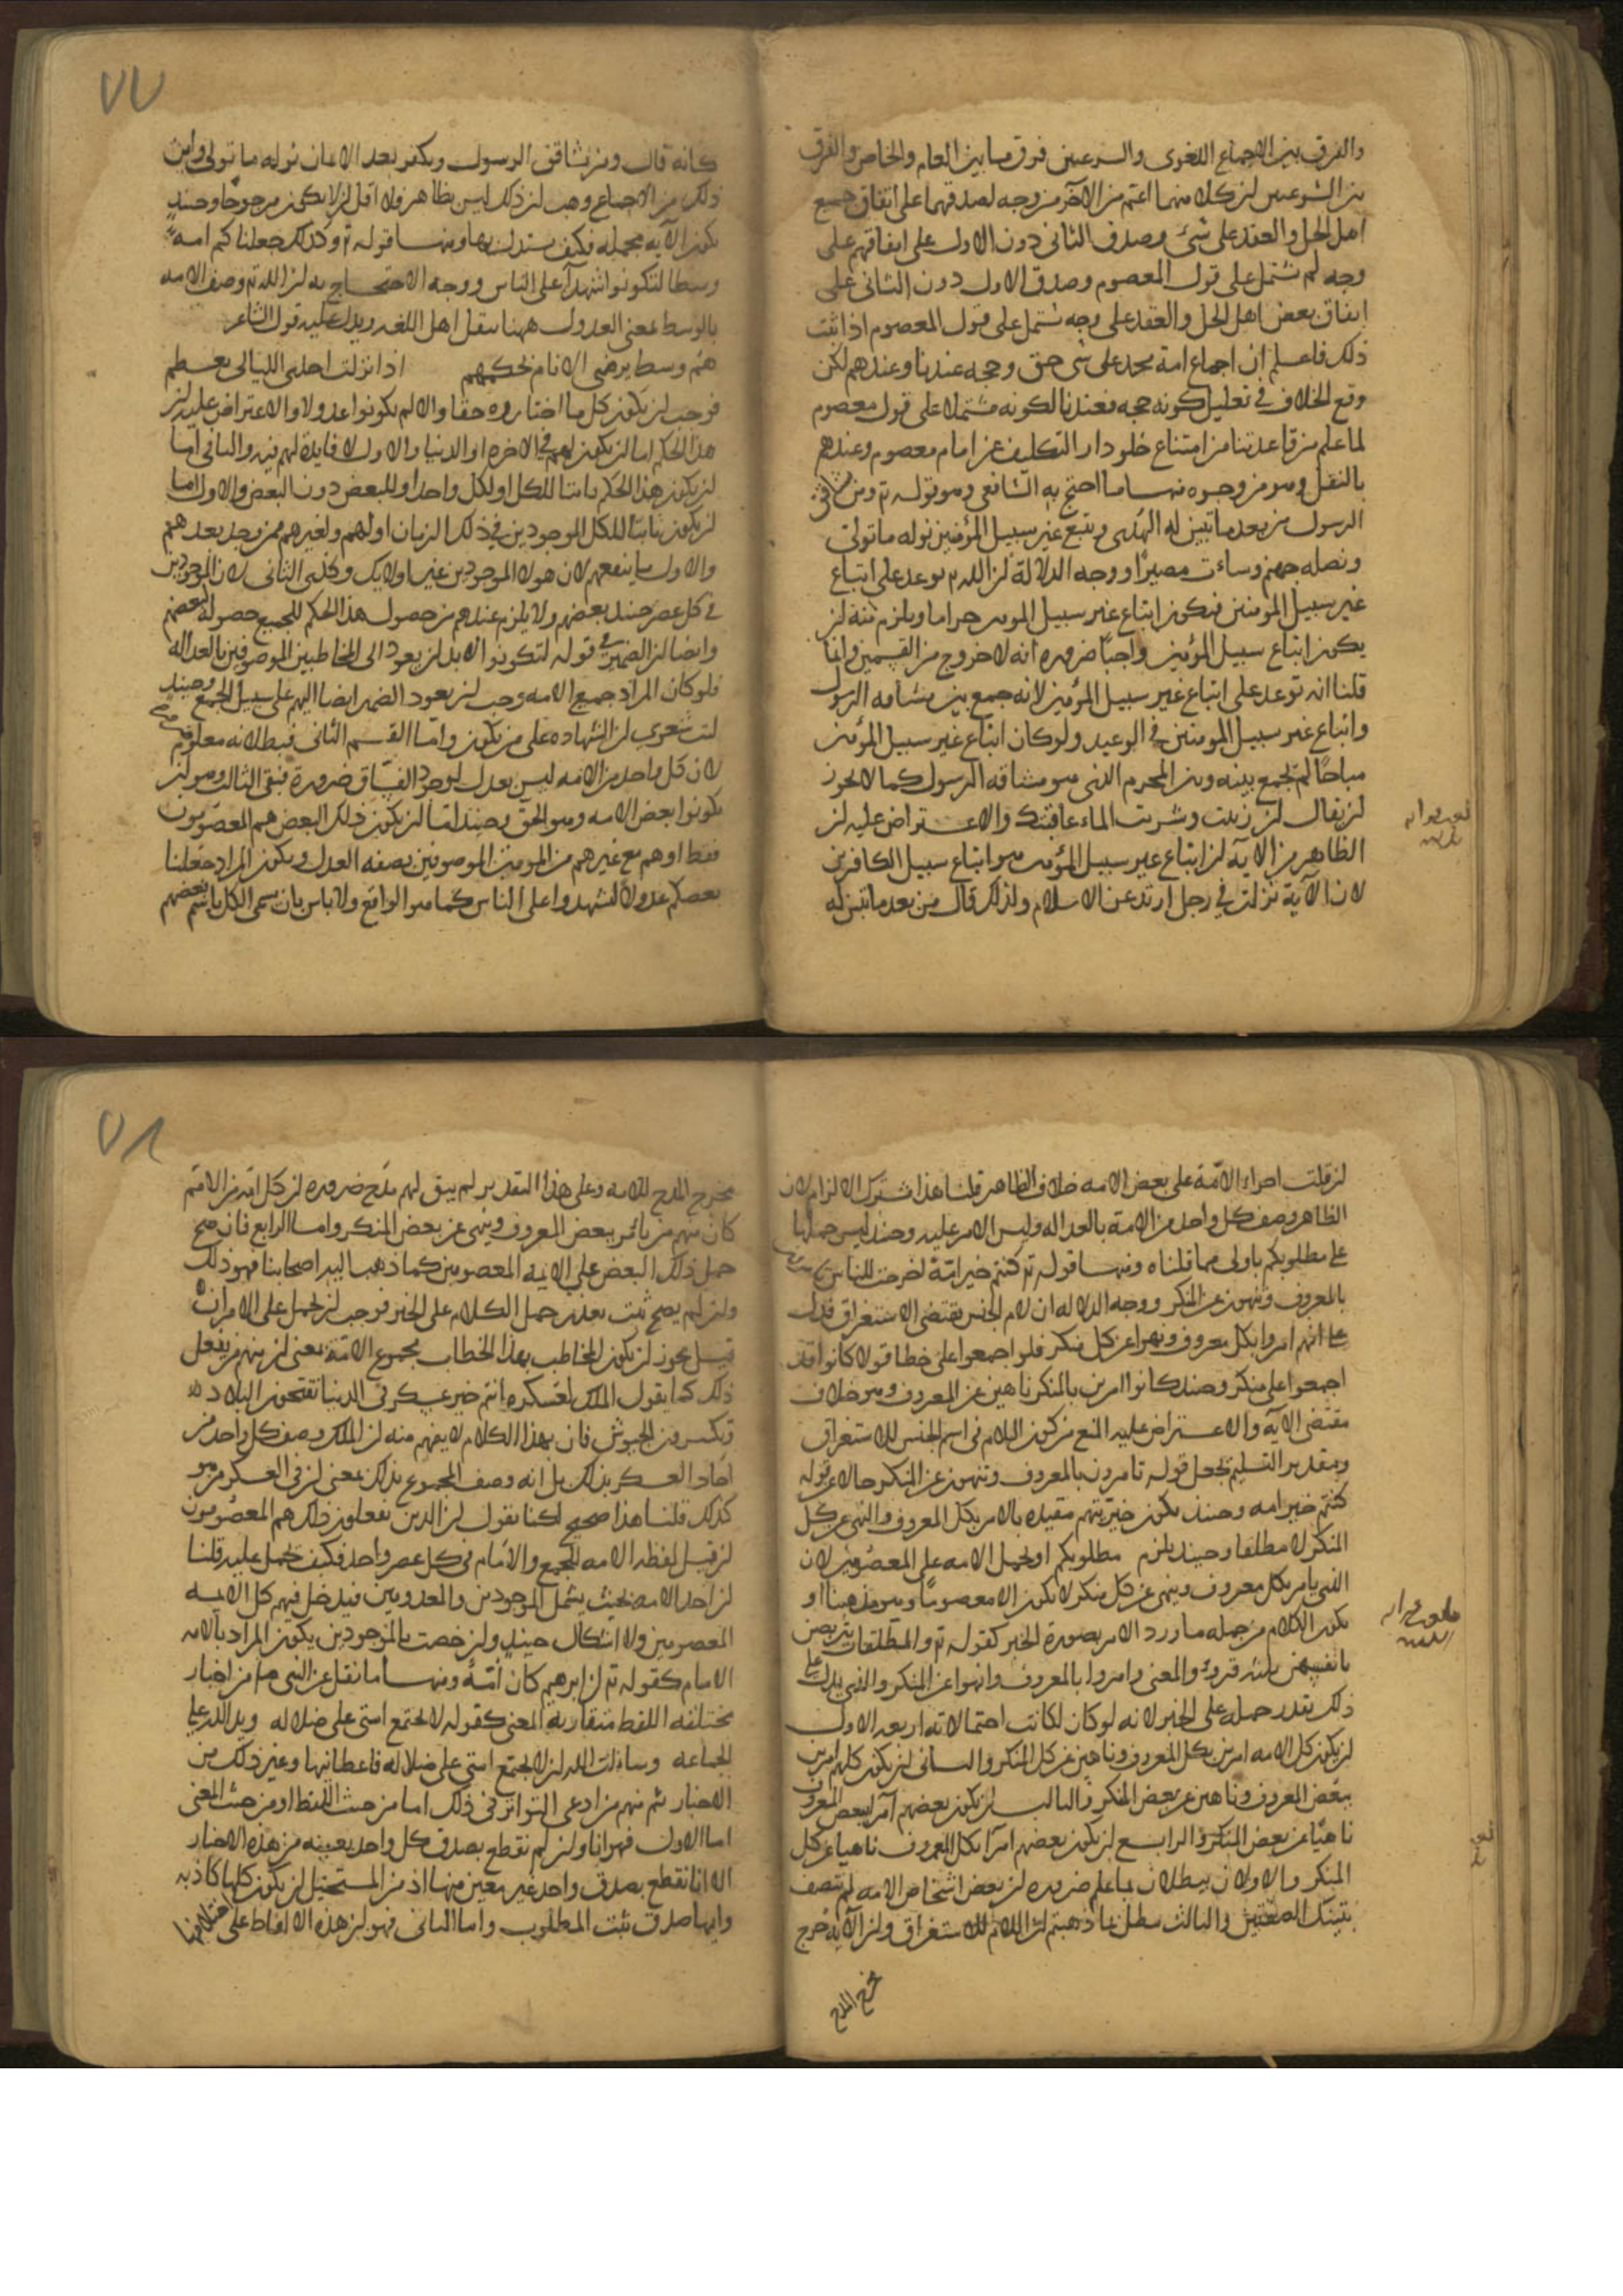 والفرق بين الاجماع اللغوى والشرعيين فرق ما بين العام والخاص والفرق
بين الشرعيين ان كلا منهما اعم من الآخر من وجه لصدقهما على اتفاق جميع
اهل الحل والعقد على شئ وصدق الثانى دون الاول على اتفاقهم على
وجه لم تشتمل على قول المعصوم وصدق الاول دون الثانى على
اتفاق بعض اهل الحل والعقد على وجه يشتمل على قول المعصوم اذا ثبت
ذلك فاعلم ان اجماع امة محمد على شى حق وحجه عندنا وعندهم لكن
وقع الخلاف فى تعليل كونه حجه فعندنا لكونه مشتملا على قول معصوم
لما علم من قاعدتنا من امتناع خلو دار التكليف عن امام معصوم وعندهم
بالنقل وهو من وجوه منها ما احتج به الشافعى وهو قوله تع ومن يشاقق
الرسول من بعد ما تبين له الهدى ويتبع غير سبيل المؤمنين نوله ما تولى
ونصله جهنم وساءت مصيرا ووجه الدلالة ان الله تع توعد على اتباع
غير سبيل المومنين فيكون اتباع غير سبيل المومنين حراما ويلزم منه ان
يكون اتباع سبيل المؤمنين واجبا ضروره انه لا خروج من القسمين وانما
قلنا انه توعد على اتباع غير سبيل المؤمنين لانه جمع بين مشاقه الرسول
واتباع غير سبيل المومنين فى الوعيد ولو كان اتباع غير سبيل المؤمنين
مباحا لم يجمع بينه وبين المحرم الذى هو مشاقه الرسول كما لا يجوز
ان يقال ان زنيت وشربت الماء عاقبتك والاعتراض عليه ان
الظاهر من الآية ان اتباع غير سبيل المؤمنين هو اتباع سبيل الكافرين
لان الآية نزلت فى رجل ارتد عن الاسلام ولذلك قال من بعد ما تبين له
كانه قال ومن يشاقق الرسول ويكفر بعد الايمان نوله ما تولى واين
ذلك من الاجماع وهب ان ذلك ليس بظاهر فلا اقل ان لا يكون مرجوحا وحينئذ
يكون الآية مجمله فكيف يستدل بها ومنها قوله تع وكذلك جعلناكم امة
وسطا لتكونوا شهدآء على الناس ووجه الاحتجاج به ان الله تع وصف الامه
بالوسط بمعنى العدول ههنا بنقل اهل اللغه ويدل عليه قول الشاعر
هم وسط يرضى الانام بحكمهم اذا نزلت احدى الليالى بمعظم
فوجب ان يكون كل ما اختاروه حقا والا لم يكونوا عدولا والاعتراض عليه ان
هذا الحكم اما ان يكون لهم فى الاخره او الدنيا والاول لا فايدة لهم فيه والثانى اما
ان يكون هذا الحكم ثابتا للكل او لكل واحد او للبعض دون البعض والاول اما
ان يكون ثابتا للكل الموجودين فى ذلك الزمان او لهم ولغيرهم ممن يوجد بعدهم
والاول ما ينفعهم لان هولاء الموجودين غير اوليك وكذى الثانى لان الموجودين
فى كل عصر حينئذ بعضهم ولا يلزم عندهم من حصول هذا الحكم للجميع حصوله لبعضهم
وايضا ان الضمير فى قوله لتكونوا لا بد ان يعود الى المخاطبين الموصوفين بالعداله
فلو كان المراد جميع الامه وجب ان يعود الضمير ايضا اليهم على سبيل الجمع وحينئذ
ليت شعرى ان الشهاده على من يكون واما القسم الثانى فبطلانه معلوم
لان كل واحد من الامه ليس بعدل لوجود الفساق ضرورة فبقى الثالث وهو ان
يكونوا بعض الامه وهو الحق وحينئذ اما ان يكون ذلك البعض هم المعصومون
فقط او هم مع غيرهم من المومنين الموصوفين بصفه العدل ويكون المراد جعلنا
بعضكم عدولا لتشهدوا على الناس كما هو الواقع ولا باس بان يسمى الكل باسم بعضهم
ان قلت اجراء الامة على بعض الامه خلاف الظاهر قلنا هذا مشترك الالزام لان
الظاهر وصف كل واحد من الامة بالعداله وليس الامر عليه وحينئذ ليس حملها
على مطلوبكم باولى مما قلناه ومنها قوله تع كنتم خير امة اخرجت للناس تامرون
بالمعروف وتنهون عن المنكر ووجه الدلاله ان لام الجنس يقتضى الاستغراق فدل
على انهم امروا بكل معروف ونهوا عن كل منكر فلو اجمعوا على خطا قولا كانوا قد
اجمعوا على منكر وحينئذ كانوا امرين بالمنكر ناهين عن المعروف وهو خلاف
مقتضى الآية والاعتراض عليه المنع من كون اللام فى اسم الجنس للاستغراق
وبتقدير التسليم نجعل قوله تامرون بالمعروف وتنهون عن المنكر حالا عن قوله
كنتم خير امه وحينئذ يكون خيريتهم مقيده بالامر بكل المعروف والنهى عن كل
المنكر لا مطلقا وحينئذ يلزم مطلوبكم او نحمل الامه على المعصومين لان
الذى يامر بكل معروف وينهى عن كل منكر لا يكون الا معصوما وهو مذهبنا او
يكون الكلام من جمله ما ورد الامر بصورة الخبر كقوله تع والمطلقات يتربصن
بانفسهن ثلثه قروء والمعنى وامروا بالمعروف وانهوا عن المنكر والذى يدل على
ذلك تعذر حمله على الخبر لانه لو كان لكانت احتمالاته اربعه الاول
ان يكون كل الامه امرين بكل المعروف وناهين عن كل المنكر والثانى ان يكون كلهم امرين
ببعض المعروف وناهين عن بعض المنكر والثالث ان يكون بعضهم آمرا ببعض المعروف
ناهيا عن بعض المنكر والرابع ان يكون بعضهم آمرا بكل المعروف ناهيا عن كل
المنكر والاولان يبطلان بما علم ضروره ان بعض اشخاص الامه لم يتصف
بتينك الصفتين والثالث يبطل بما ذهبتم ان اللام للاستغراق وان الآية خرج
مخرج المدح
مخرج المدح للامه وعلى هذا التقدير لم يبق لهم مدح ضروره ان كل امة من الامم
كان منهم من يامر ببعض المعروف وينهى عن بعض المنكر واما الرابع فان صح
حمل ذلك البعض على الايمه المعصومين كما ذهب اليه اصحابنا فهو ذلك
وان لم يصح ثبت تعذر حمل الكلام على الخبر فوجب ان يحمل على الامر ان
قيل يجوز ان يكون المخاطب بهذا الخطاب مجموع الامة بمعنى ان منهم من يفعل
ذلك كما يقول الملك لعسكره انتم خير عسكر فى الدنيا تفتحون البلاد
وتكسرون الجيوش فان بهذا الكلام لا يفهم منه ان الملك وصف كل واحد من
آحاد العسكر بذلك بل انه وصف المجموع بذلك بمعنى ان فى العسكر من هو
كذلك قلنا هذا صحيح لكنا نقول ان الذين يفعلون ذلك هم المعصومون
ان قيل لفظه الامه للجمع والامام فى كل عصر واحد فكيف تحمل عليه قلنا
ان اخذ الامه بحيث يشمل الموجودين والمعدومين فيدخل فيهم كل الايمه
المعصومين ولا اشكال حينئذ وان خصت بالموجودين يكون المراد بالامه
الامام كقوله تع ان ابرهيم كان امة ومنها ما نقل عن النبى صلعم من اخبار
مختلفه اللفظ متقاربة المعنى كقوله لا تجتمع امتى على ضلاله ويد الله على
الجماعه وسالت الله ان لا تجتمع امتى على ضلاله فاعطانيها وغير ذلك من
الاخبار ثم منهم من ادعى التواتر فى ذلك اما من حيث اللفظ او من حيث المعنى
اما الاول فهو انا وان لم نقطع بصدق كل واحد بعينه من هذه الاخبار
الا انا نقطع بصدق واحد غير معين منها اذ من المستحيل ان يكون كلها كاذبه
وايها صدق ثبت المطلوب واما الثانى فهو ان هذه الالفاظ على اختلافها